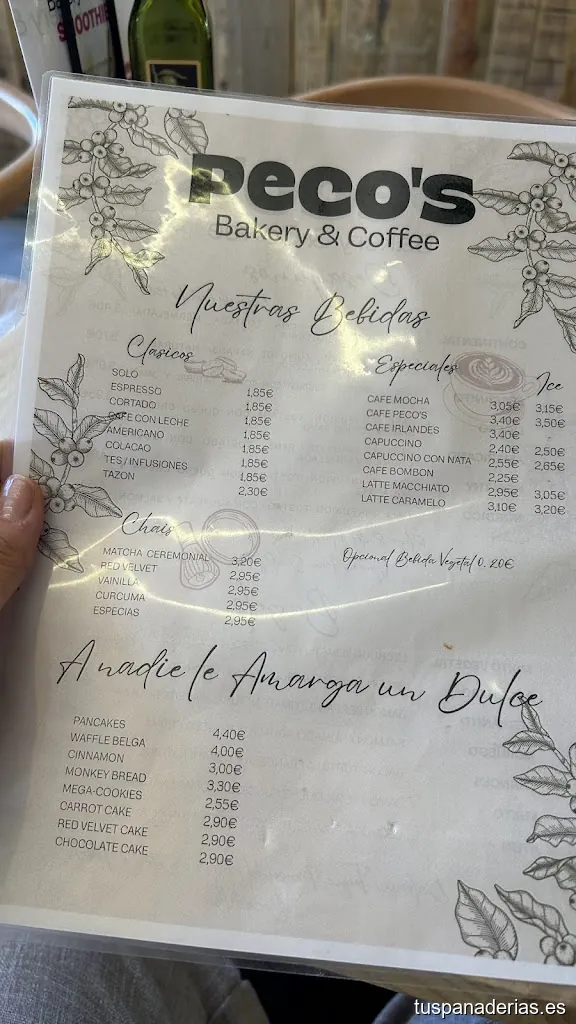 SMOOTHIE
Peco's
Bakery & Coffee
Nuestras Bebidas
Clasicos
SOLO 1,85€
ESPRESSO 1,85€
CORTADO 1,85€
CAFE CON LECHE 1,85€
AMERICANO 1,85€
COLACAO 1,85€
TES / INFUSIONES 1,85€
TAZON 2,30€
Especiales Ice
CAFE MOCHA 3,05€ 3,15€
CAFE PECO'S 3,40€ 3,50€
CAFE IRLANDES 3,40€
CAPUCCINO 2,40€ 2,50€
CAPUCCINO CON NATA 2,55€ 2,65€
CAFE BOMBON 2,25€
LATTE MACCHIATO 2,95€ 3,05€
LATTE CARAMELO 3,10€ 3,20€
Chais
MATCHA CEREMONIAL 3,20€
RED VELVET 2,95€
VAINILLA 2,95€
CURCUMA 2,95€
ESPECIAS 2,95€
Opcional Bebida Vegetal 0. 20€
A nadie le Amarga un Dulce
PANCAKES 4,40€
WAFFLE BELGA 4,00€
CINNAMON 3,00€
MONKEY BREAD 3,30€
MEGA-COOKIES 2,55€
CARROT CAKE 2,90€
RED VELVET CAKE 2,90€
CHOCOLATE CAKE 2,90€
tuspanaderias.es